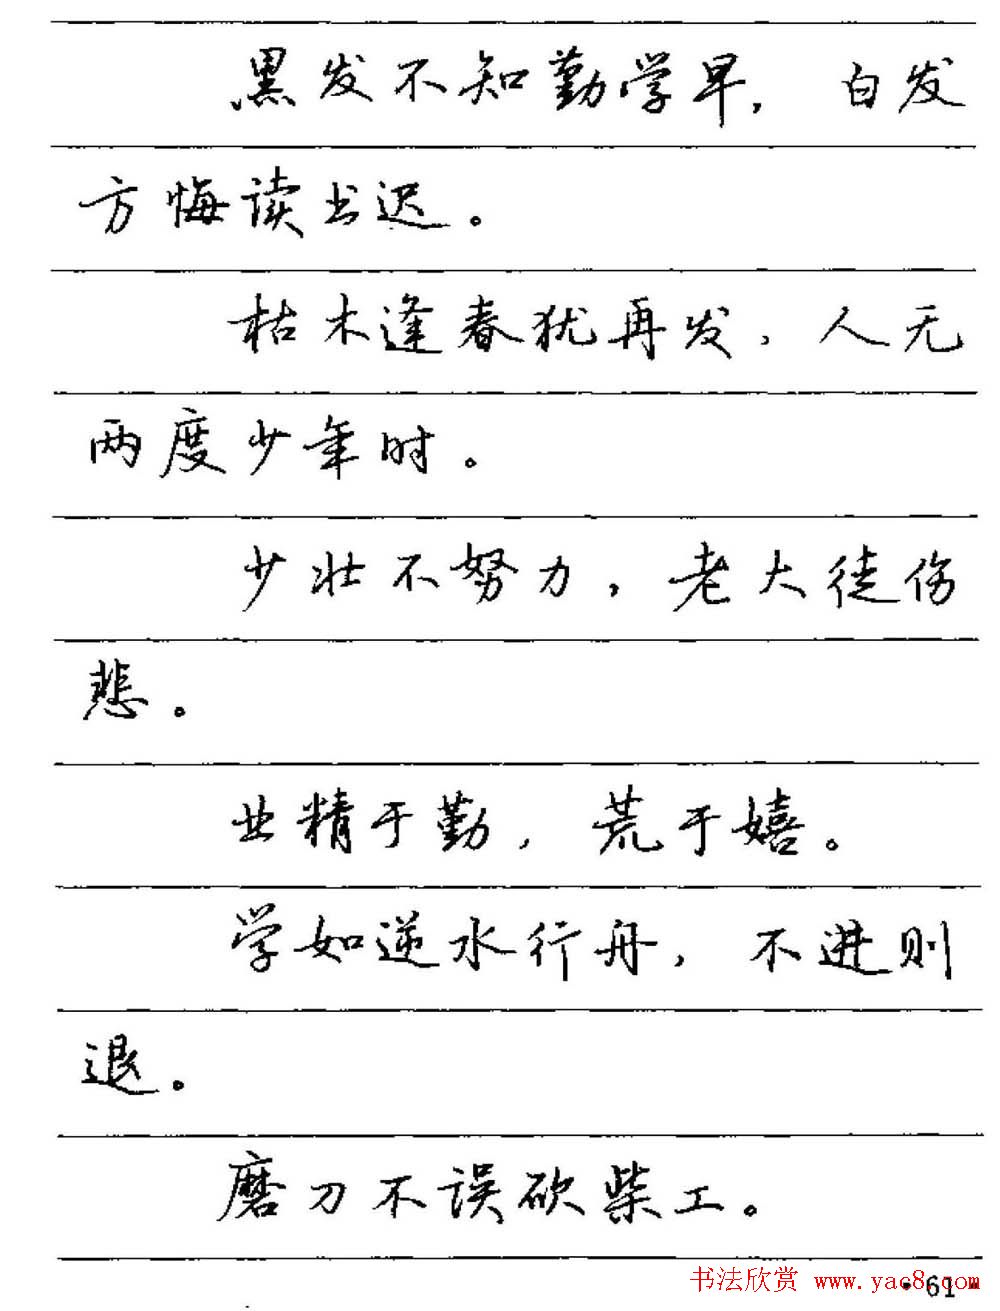 黑发不知勤学早，白发
方悔读书迟。
枯木逢春犹再发，人无
两度少年时。
少壮不努力，老大徒伤
悲。
业精于勤，荒于嬉。
学如逆水行舟，不进则
退。
磨刀不误砍柴工。
书法欣赏 www.yac8.com
·61·